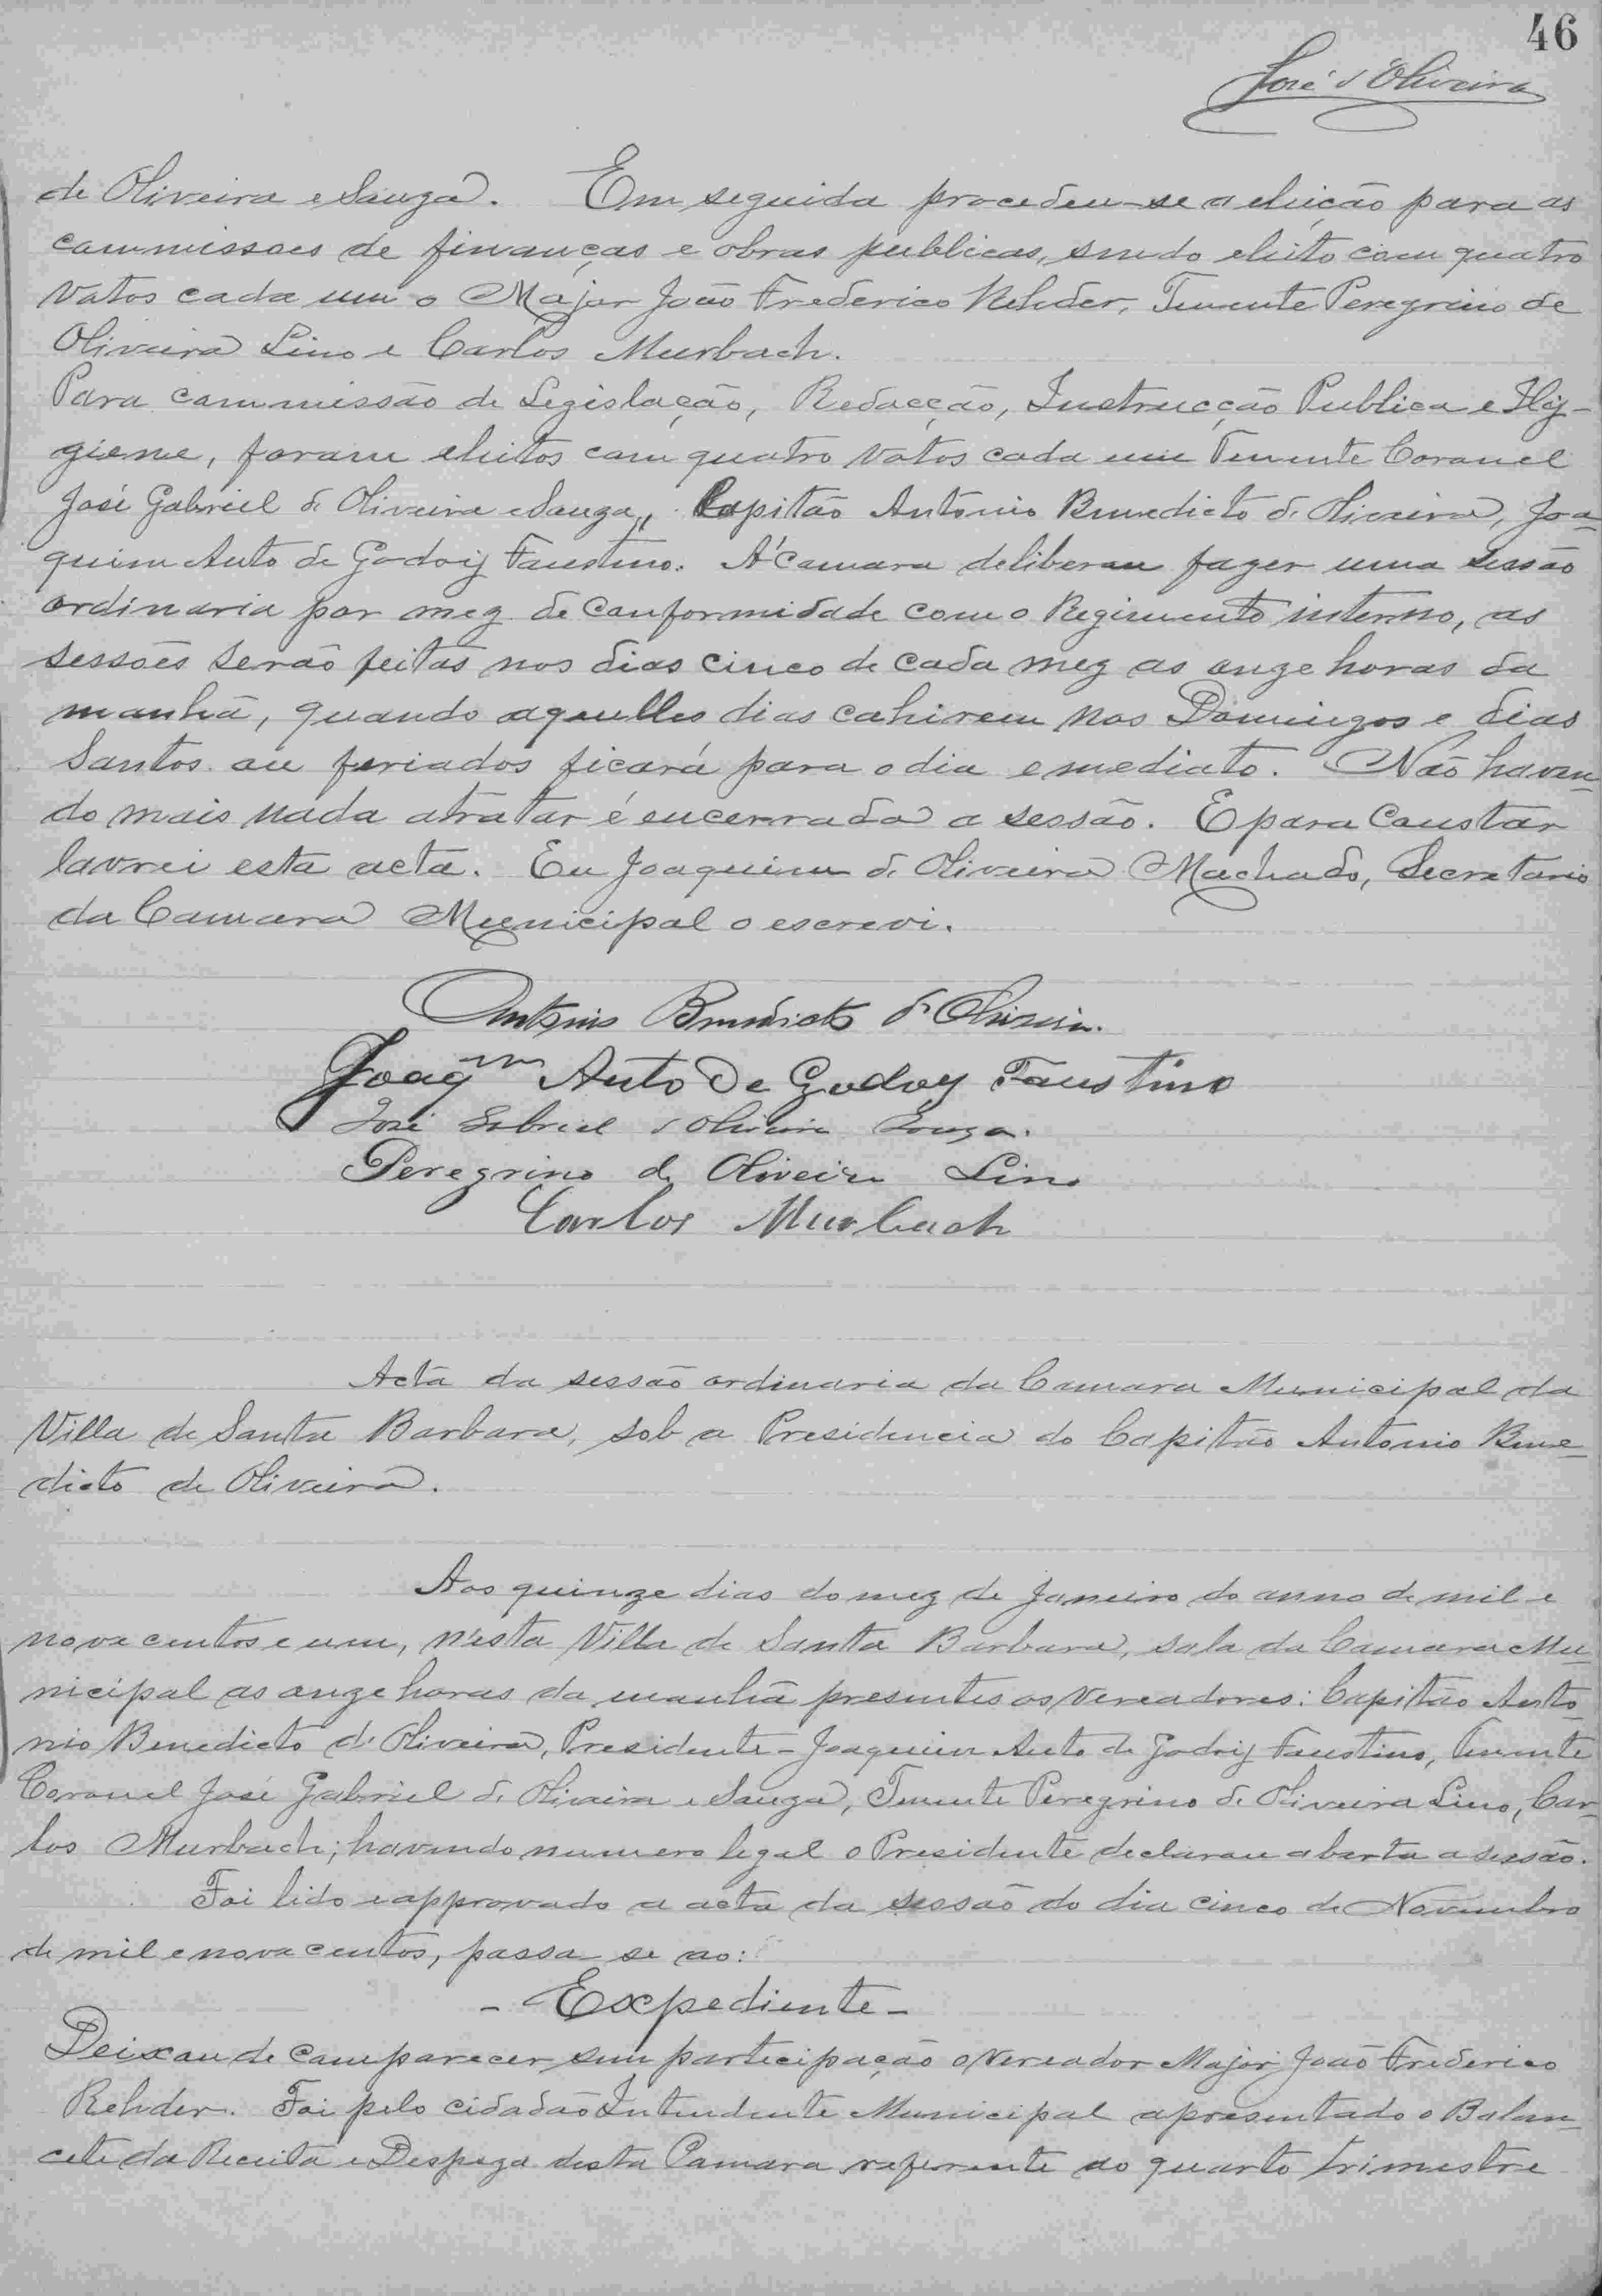 46
José d'Oliveira
de Oliveira e Souza. Em seguida procedeu-se a eleição para as
commissoes de finanças e obras publicas, sendo eleito com quatro
votos cada um o Major João Frederico Rehder, Tenente Peregrino de
Oliveira Lino e Carlos Murbach.
Para commissão de Legislação, Redacção, Instrucção Publica e Hy-
giene, foram eleitos com quatro votos cada um Tenente Coronel
José Gabriel de Oliveira e Souza, Capitão Antonio Benedicto de Oliveira, Joa-
quim Auto de Godoy Faustino. A Camara deliberou fazer uma sessão
ordinaria por mez de conformidade com o Regimento interno, as
sessões serão feitas nos dias cinco de cada mez as onze horas da
manhã, quando aquelles dias cahirem nos Domingos e dias
Santos ou feriados ficará para o dia emediato. Não haven-
do mais nada a tratar é encerrada a sessão. E para constar
lavrei esta acta. Eu Joaquim de Oliveira Machado, Secretario
da Camara Municipal o escrevi.
Antonio Benedicto d'Oliveira.
Joaqm Auto de Godoy Faustino
José Gabriel d'Oliveira Souza.
Peregrino de Oliveira Lino
Carlos Murbach
Acta da sessão ordinaria da Camara Municipal da
Villa de Santa Barbara, sob a Presidencia do Capitão Antonio Bene-
dicto de Oliveira.
Aos quinze dias do mez de Janeiro do anno de mil e
nove centos e um, n'esta Villa de Santa Barbara, sala da Camara Mu-
nicipal as onze horas da manhã presentes os Vereadores: Capitão Anto-
nio Benedicto d'Oliveira, Presidente - Joaquim Auto de Godoy Faustino, Tenente
Coronel José Gabriel de Oliveira e Souza, Tenente Peregrino de Oliveira Lino, Car-
los Murbach; havendo numero legal o Presidente declarou aberta a sessão.
Foi lido e approvado a acta da sessão do dia cinco de Novembro
de mil e nove centos, passa-se ao:
- Expediente -
Deixou de comparecer sem participação o Vereador Major João Frederico
Rehder. Foi pelo cidadão Intendente Municipal apresentado o Balan-
cete da Receita e Despeza desta Camara referente ao quarto trimestre